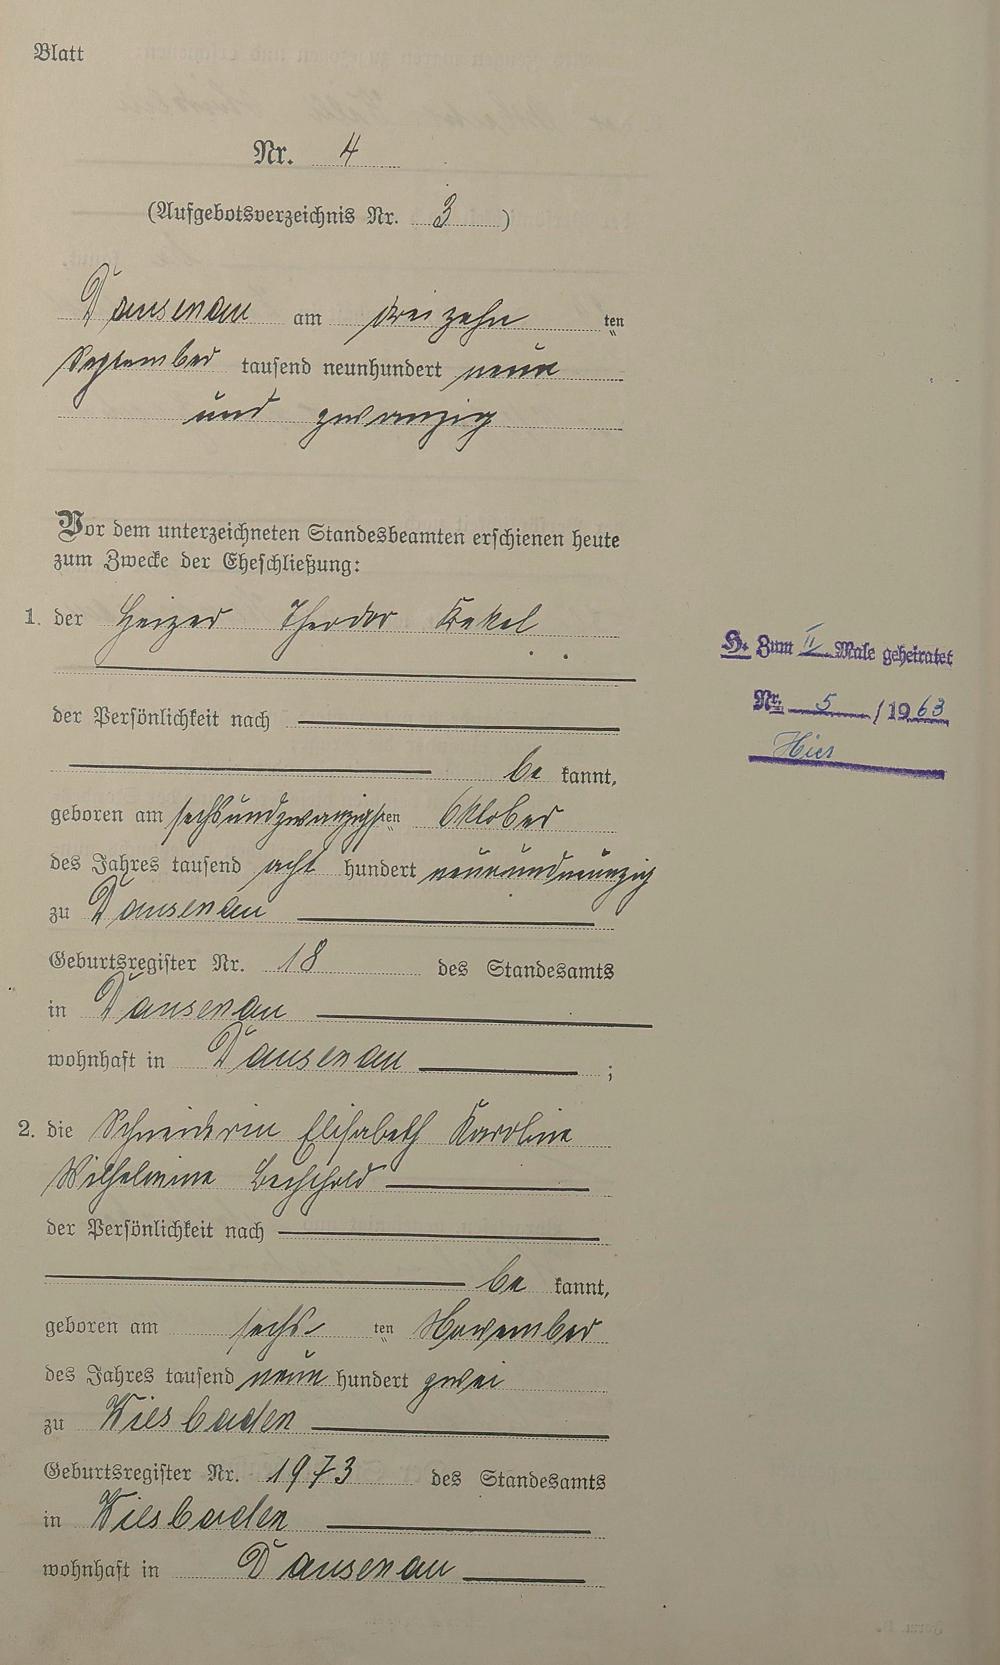 Blatt
Nr. 4
(Aufgebotsverzeichnis Nr. 3)
Dausenau am dreizehn ten
September tausend neunhundert neun
und zwanzig
Vor dem unterzeichneten Standesbeamten erschienen heute
zum Zwecke der Eheschließung:
1. der Heizer Theodor Kekel
der Persönlichkeit nach
be kannt,
geboren am sechsundzwanzigsten Oktober
des Jahres tausend acht hundert neunundneunzig
zu Dausenau
Geburtsregister Nr. 18 des Standesamts
in Dausenau
wohnhaft in Dausenau ;
2. die Schneiderin Elisabeth Karoline
Wilhelmine Bechthold
der Persönlichkeit nach
be kannt,
geboren am sechs ten November
des Jahres tausend neun hundert zwei
zu Wiesbaden
Geburtsregister Nr. 1973 des Standesamts
in Wiesbaden
wohnhaft in Dausenau
H. Zum II. Male geheiratet
Nr. 5 / 1963
Hier